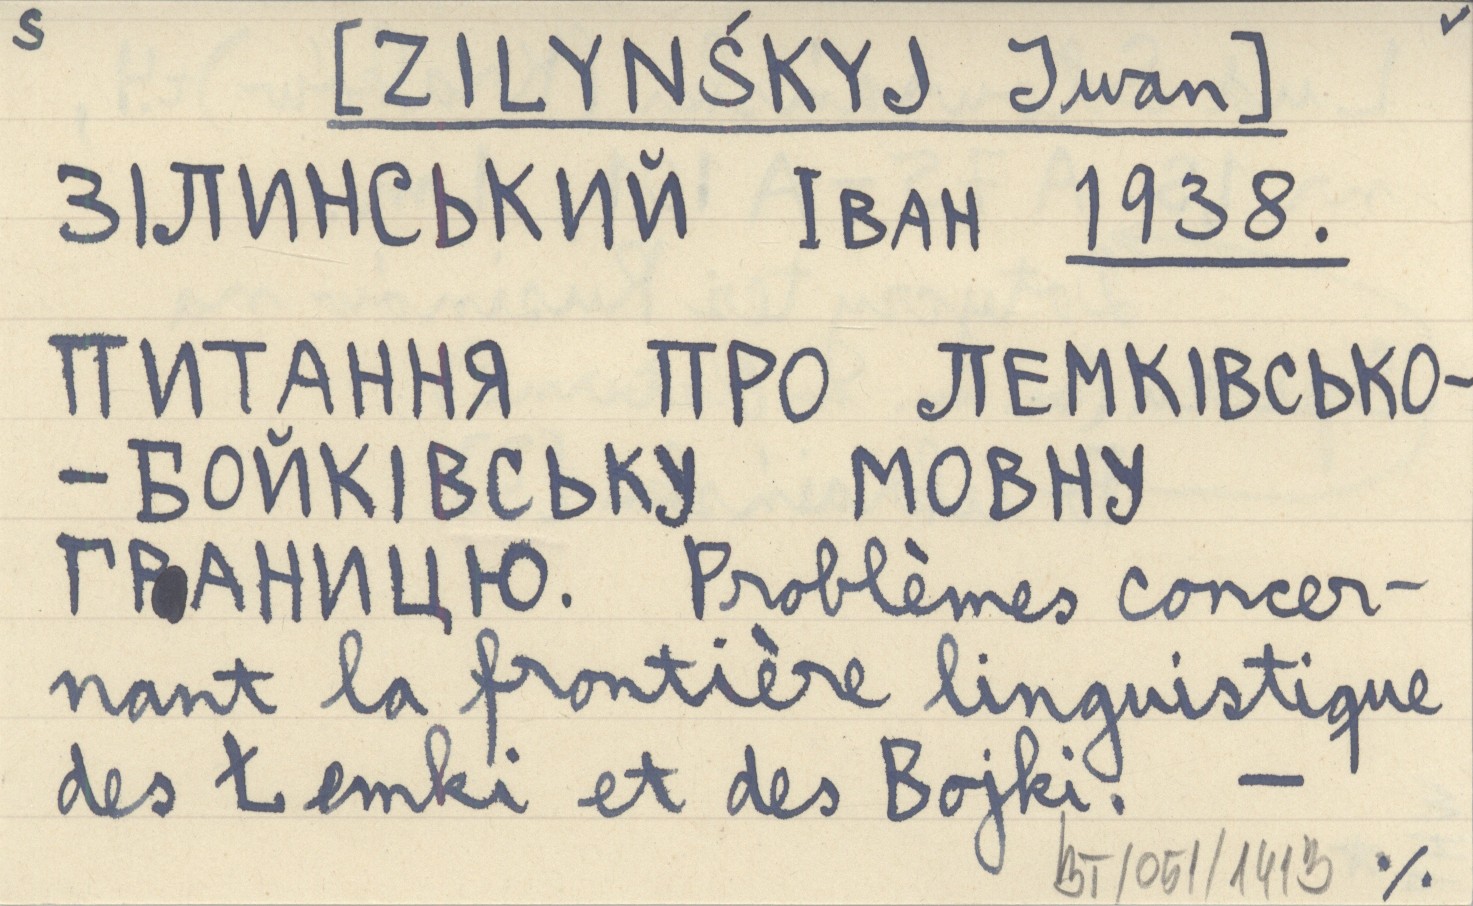 S
[ZILYNŚKYJ Iwan]
ЗІЛИНСЬКИЙ ІВАН 1938.
ПИТАННЯ ПРО ЛЕМКІВСЬКО-
-БОЙКІВСЬКУ МОВНУ
ГРАНИЦЮ. Problèmes concer-
nant la frontière linguistique
des Łemki et des Bojki. —
BT/051/1413 ./.